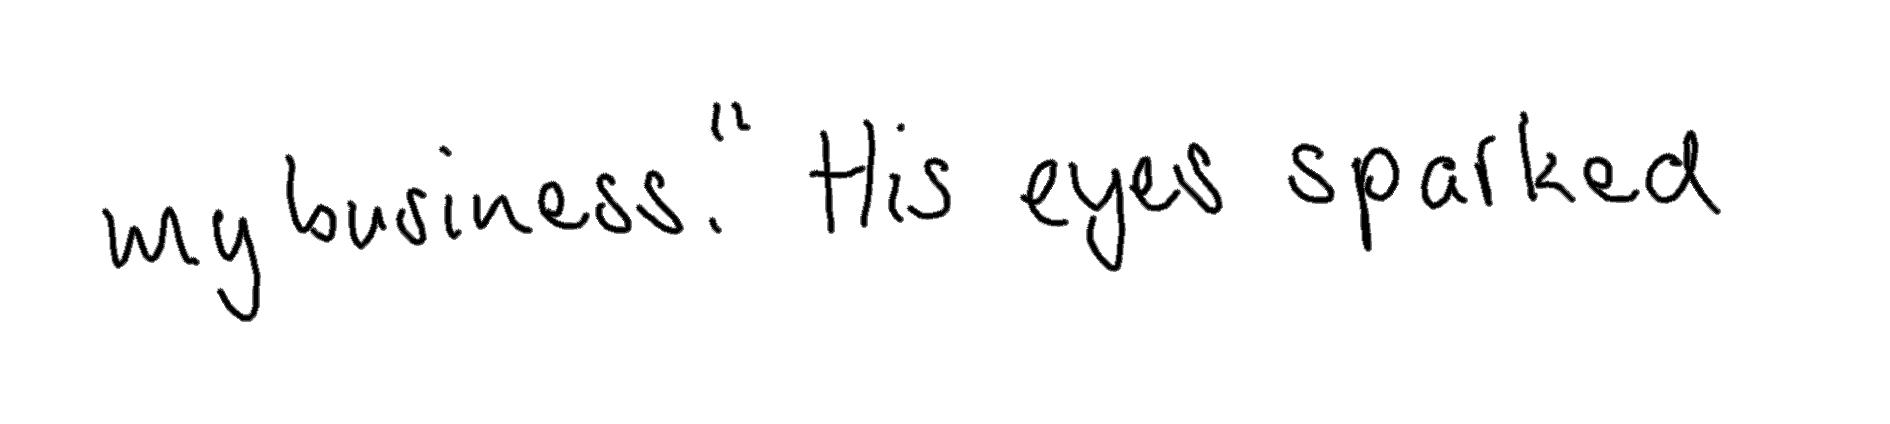 my business." His eyes sparked